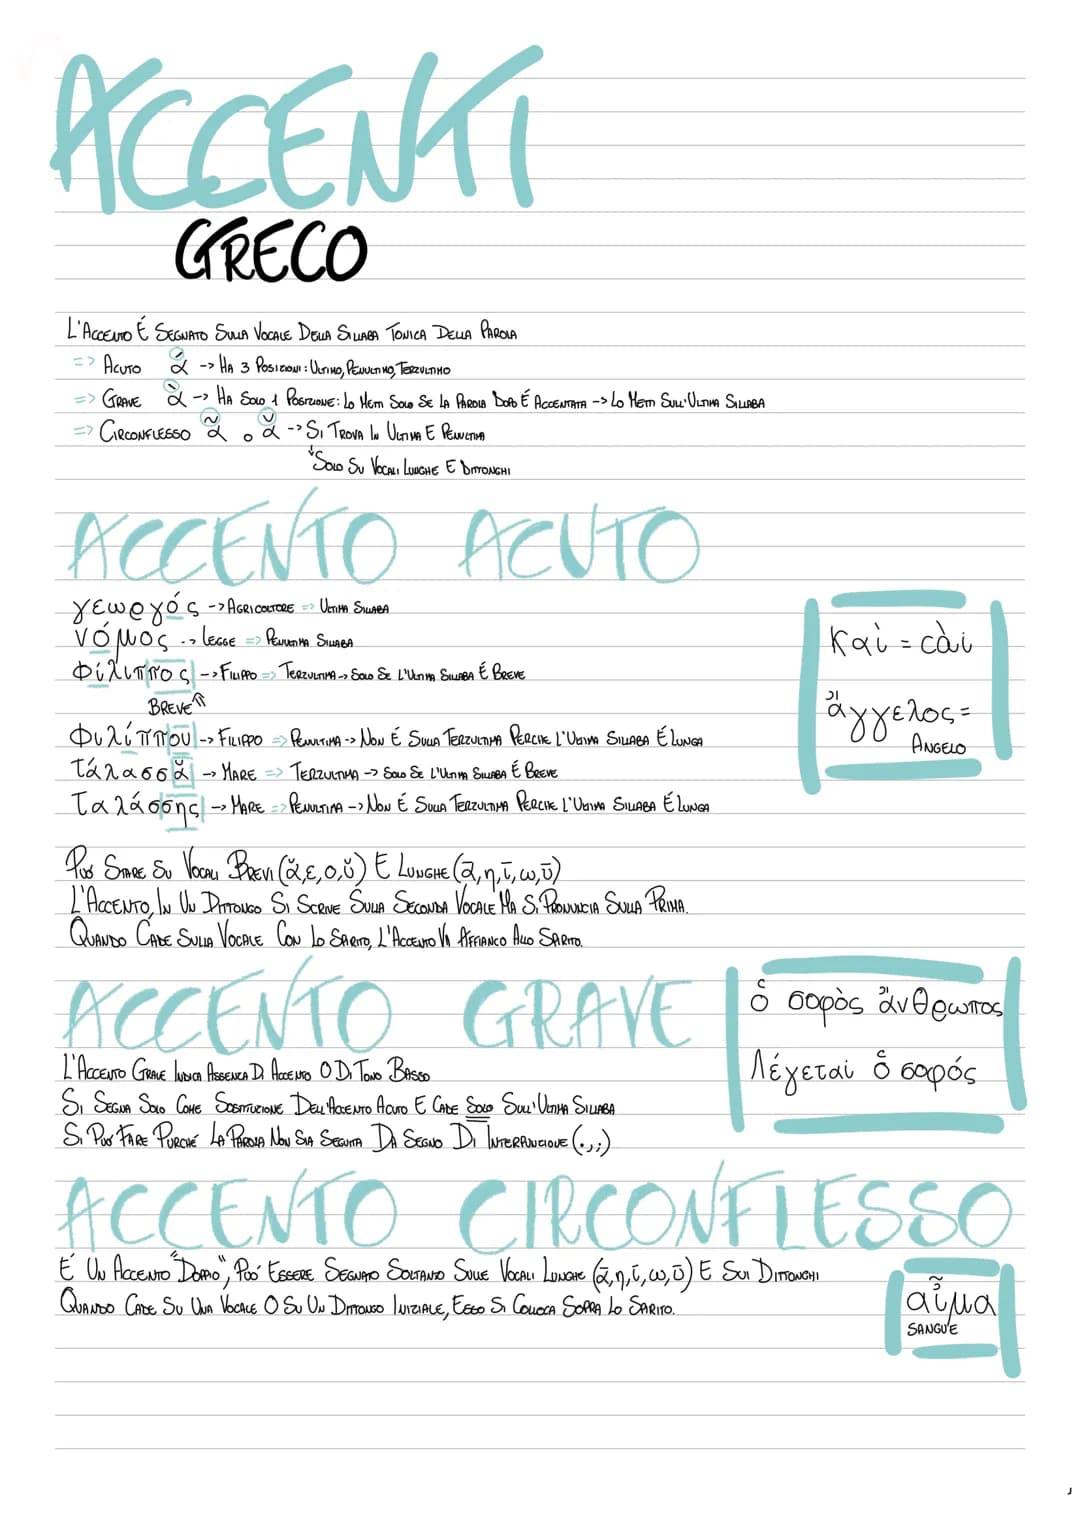 ACCENTI
GRECO
L'ACCENTO É SEGNATO SULLA VOCALE DELLA SILLABA TONICA DELLA PAROLA
=> ACUTO ά -> HA 3 POSIZIONI: ULTIMO, PENULTIMO, TERZULTIMO
=> GRAVE ὰ -> HA SOLO 1 POSIZIONE: LO METTI SOLO SE LA PAROLA DOPO É ACCENTATA -> LO METTI SULL'ULTIMA SILLABA
=> CIRCONFLESSO α̃ o ᾰ -> SI TROVA IN ULTIMA E PENULTIMA
↓ SOLO SU VOCALI LUNGHE E DITTONGHI
ACCENTO ACUTO
γεωργός -> AGRICOLTORE => ULTIMA SILLABA
νόμος -> LEGGE => PENULTIMA SILLABA
Φίλιππος -> FILIPPO => TERZULTIMA -> SOLO SE L'ULTIMA SILLABA É BREVE
BREVE
Φιλίππου -> FILIPPO => PENULTIMA -> NON É SULLA TERZULTIMA PERCHE L'ULTIMA SILLABA É LUNGA
Τάλασσᾰ -> MARE => TERZULTIMA -> SOLO SE L'ULTIMA SILLABA É BREVE
Ταλάσσης -> MARE => PENULTIMA -> NON É SULLA TERZULTIMA PERCHE L'ULTIMA SILLABA É LUNGA
Καὶ = càì
ἄγγελος =
ANGELO
PUÓ STARE SU VOCALI BREVI (ᾰ, ε, ο, ῠ) E LUNGHE (ᾱ, η, ῑ, ω, ῡ)
L'ACCENTO, IN UN DITTONGO SI SCRIVE SULLA SECONDA VOCALE MA SI PRONUNCIA SULLA PRIMA.
QUANDO CADE SULLA VOCALE CON LO SPIRITO, L'ACCENTO VA AFFIANCO ALLO SPIRITO.
ACCENTO GRAVE
ὁ σοφὸς ἄνθρωπος
Λέγεται ὁ σοφός
L'ACCENTO GRAVE INDICA ASSENZA DI ACCENTO O DI TONO BASSO
SI SEGNA SOLO COME SOSTITUZIONE DELL'ACCENTO ACUTO E CADE SOLO SULL'ULTIMA SILLABA
SI PUÓ FARE PURCHÉ LA PAROLA NON SIA SEGUITA DA SEGNO DI INTERPUNZIONE (.,;)
ACCENTO CIRCONFLESSO
É UN ACCENTO "DOPPIO", PUÓ ESSERE SEGNATO SOLTANTO SULLE VOCALI LUNGHE (ᾱ, η, ῑ, ω, ῡ) E SUI DITTONGHI
QUANDO CADE SU UNA VOCALE O SU UN DITTONGO INIZIALE, ESSO SI COLLOCA SOPRA LO SPIRITO.
αἷμα
SANGUE